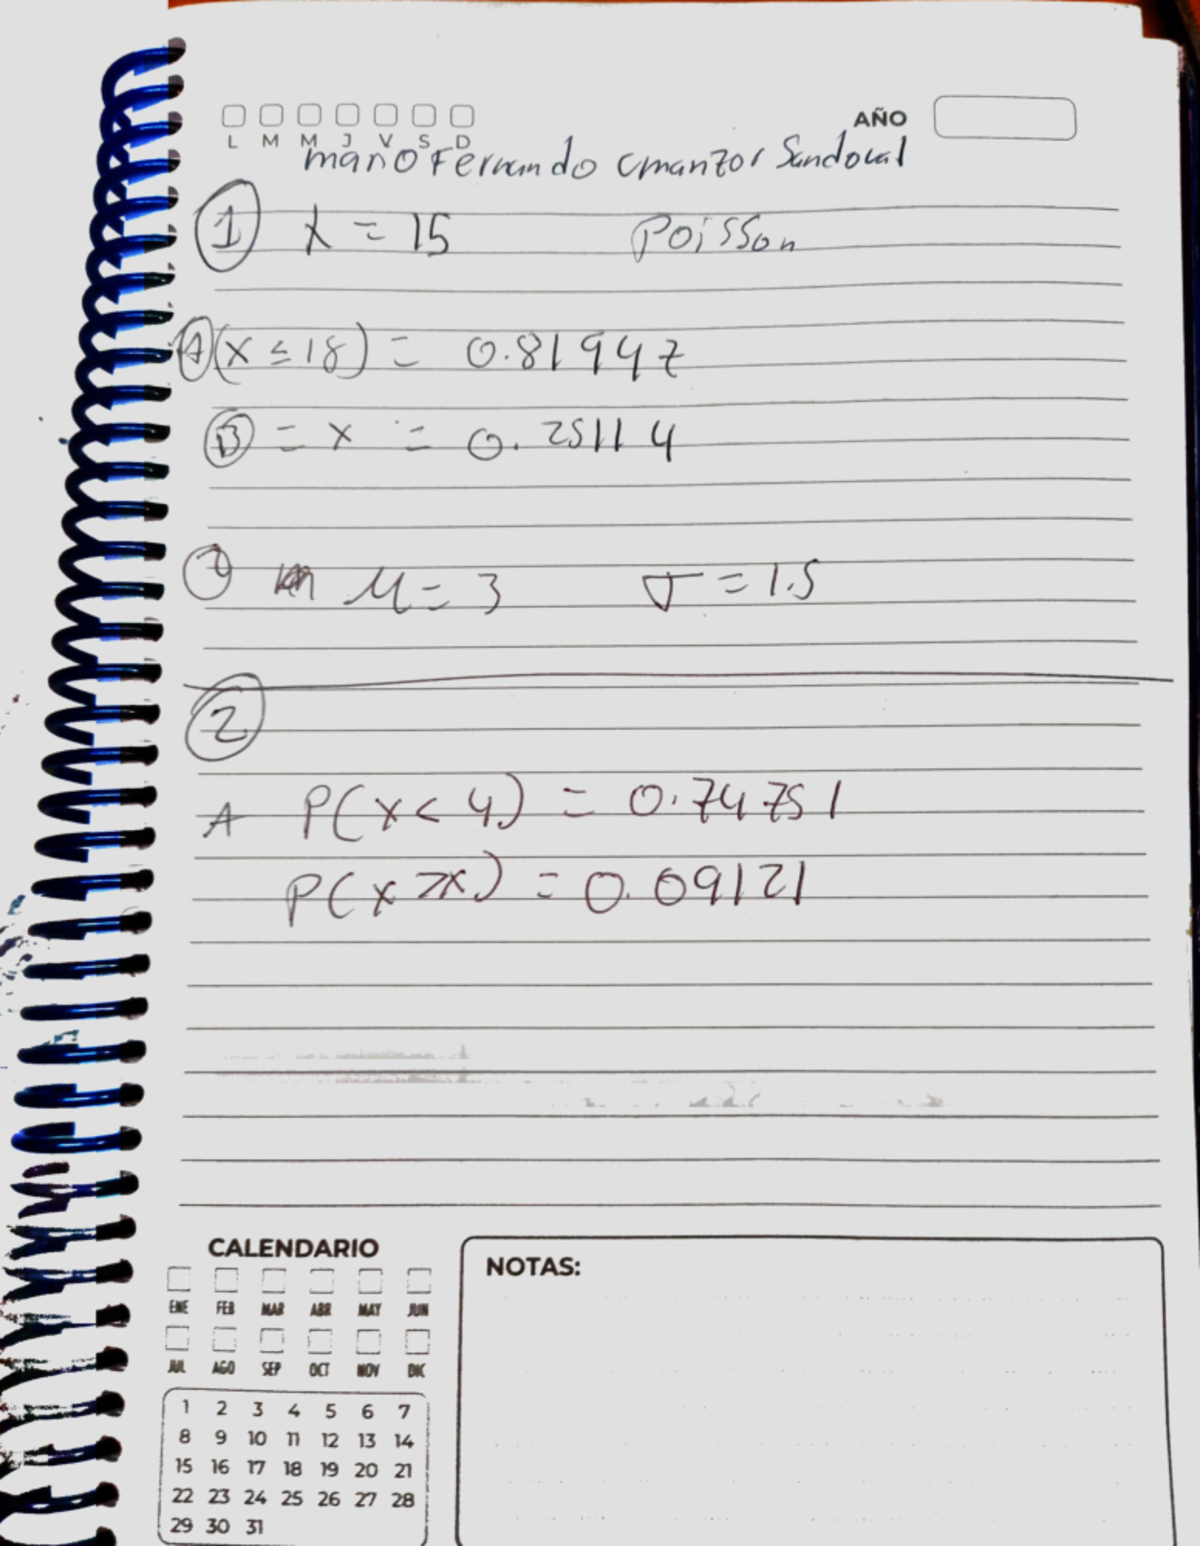 L M M J V S D
AÑO
Mario Fernando Amanzor Sandoval
1 λ = 15 Poisson
A (x ≤ 18) = 0.81947
B = x = 0.25114
μ = 3 σ = 1.5
2
A P(x < 4) = 0.74751
P(x > x) = 0.09121
CALENDARIO
ENE FEB MAR ABR MAY JUN
JUL AGO SEP OCT NOV DIC
1 2 3 4 5 6 7
8 9 10 11 12 13 14
15 16 17 18 19 20 21
22 23 24 25 26 27 28
29 30 31
NOTAS: